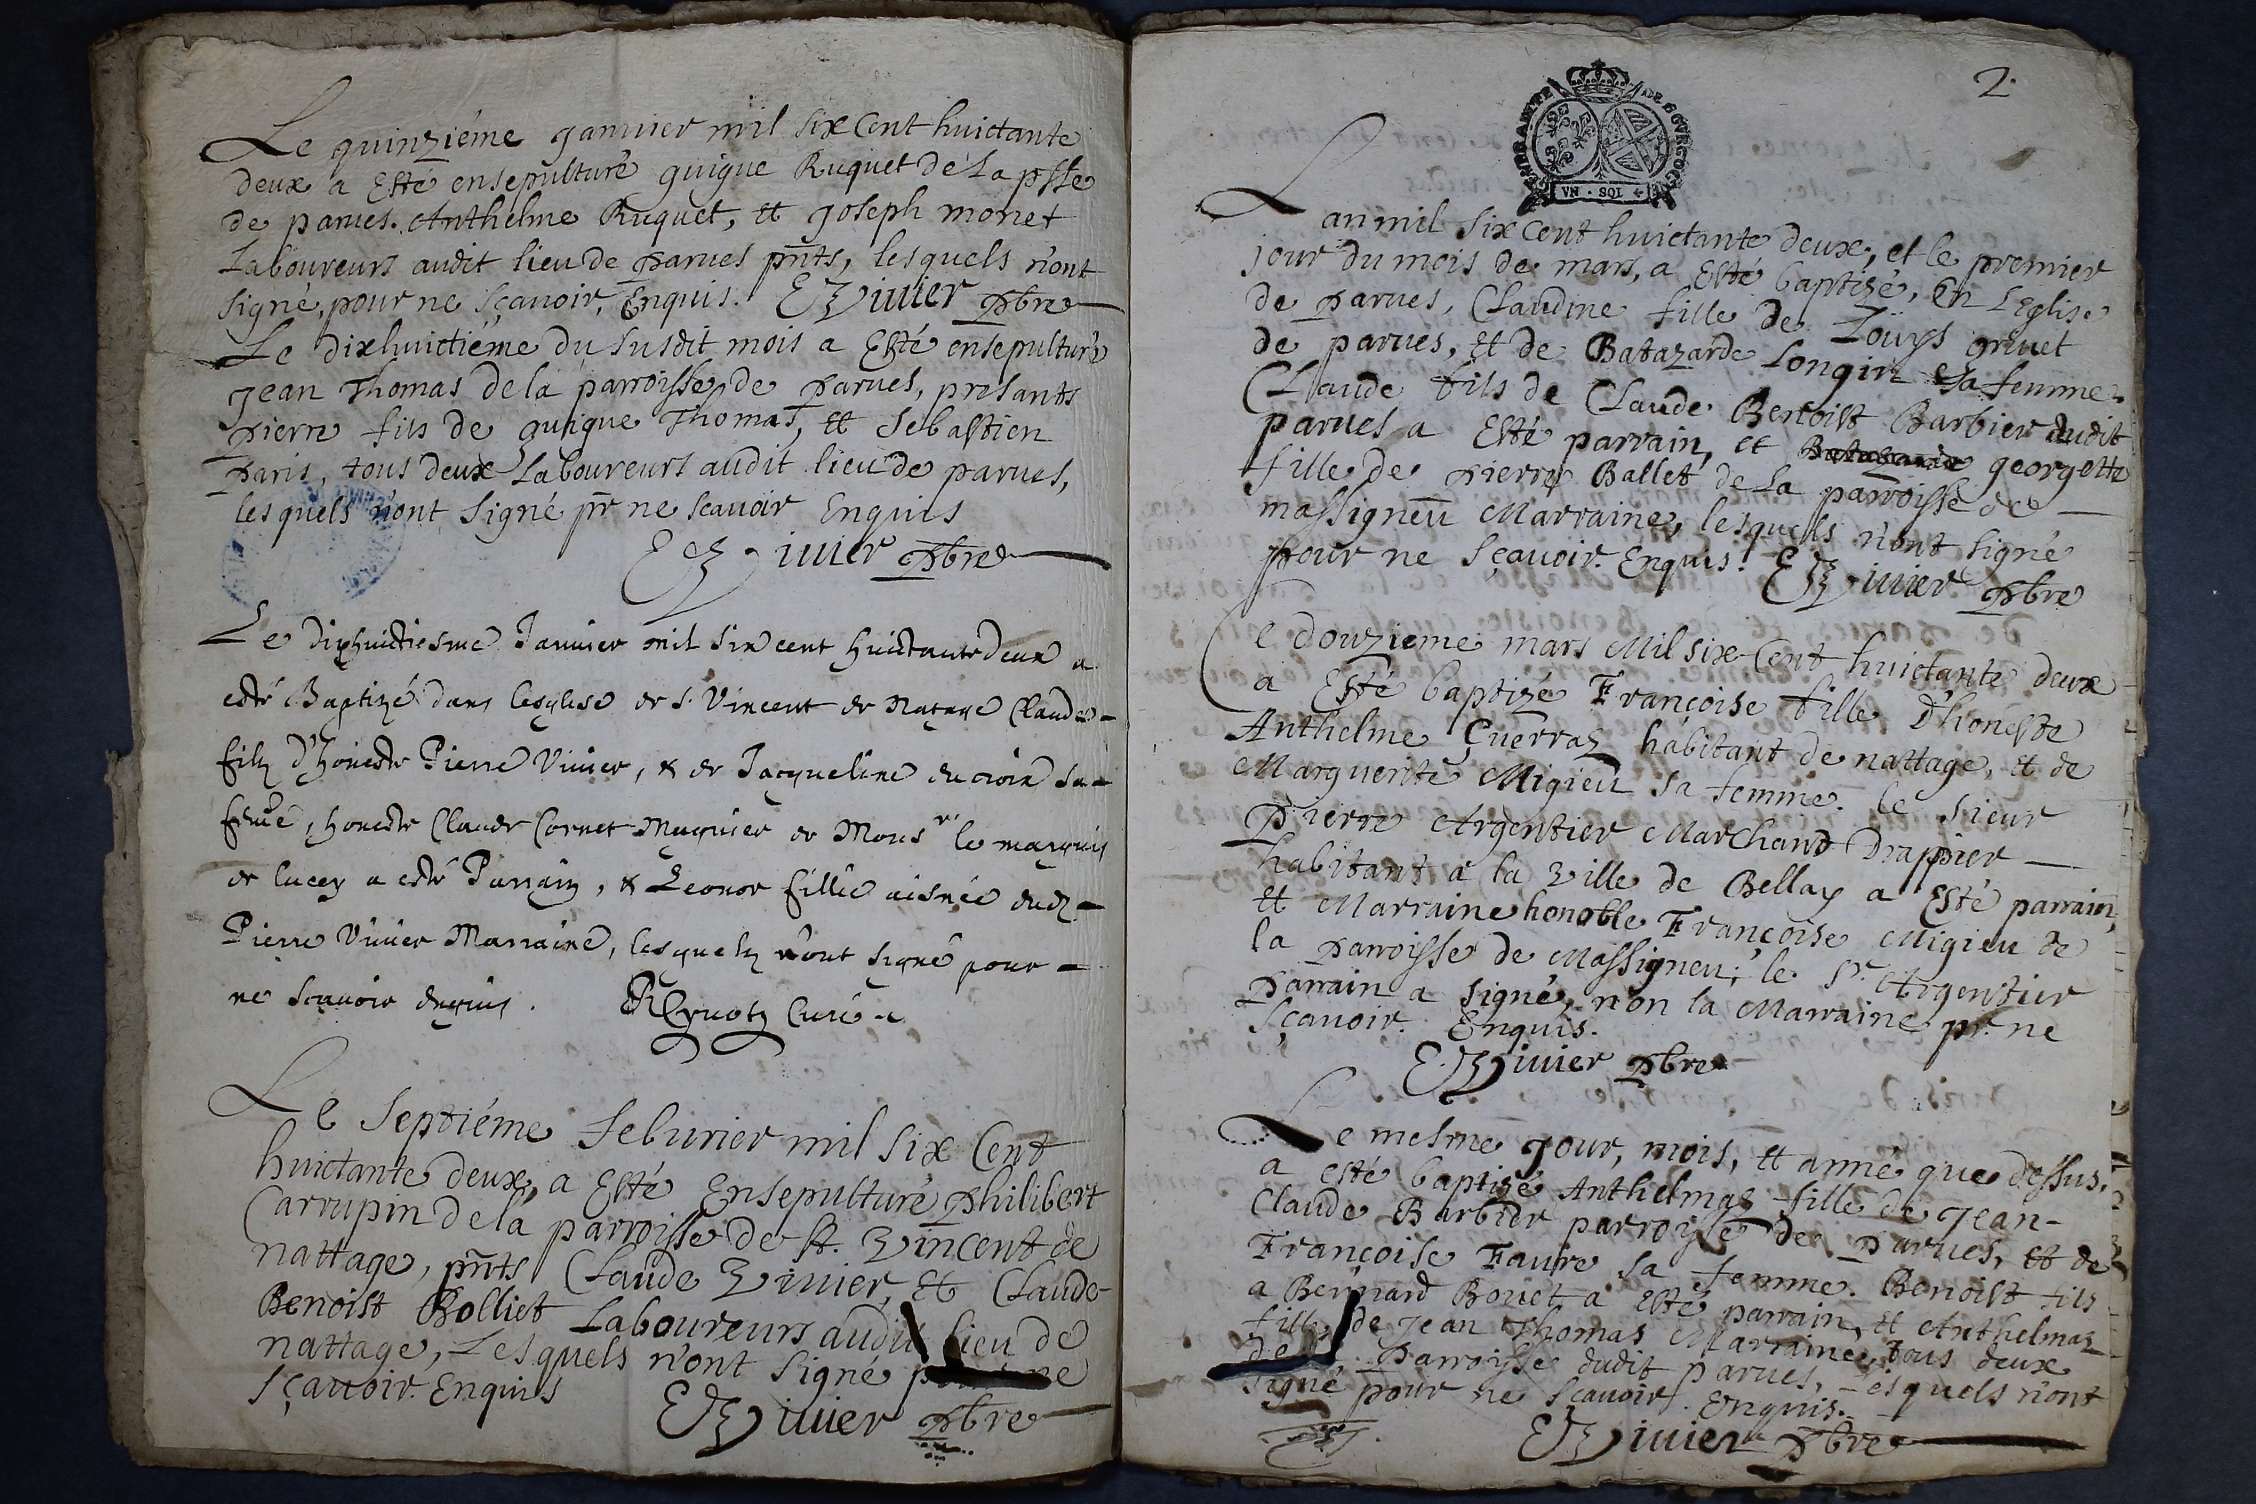 Le quinziéme Januier mil six Cent huictante
deux a Esté ensepulturé guigue Ruquet de La psse
de parues. Anthelme Ruquet, et Joseph monet
Laboureurs audit lieu de parues pnts, lesquels n'ont
signé, pour ne sçauoir, Enquis. E Viuier pbre
Le dixhuictiéme du susdit mois a Esté ensepulturé
Jean Thomas de la parroisse de parues, presants
pierre fils de guigue Thomas, et Sebastien
paris, tous deux Laboureurs audit lieu de parues,
lesquels n'ont signé pr ne scauoir Enquis
E Viuier pbre
Le dixhuictiesme Januier mil six cent huictante deux a
esté Baptizé dans lesglise de S. Vincent de Natage Claude
filz d'honeste Pierre Viuier, & de Jacqueline ducroix sa
feme, honeste Claude Cornet Mugnier de Monsr le marquis
de lucey a esté Parrain, & Leonor fillie aisnée dudt
Pierre Viuier Marraine, lesquelz n'ont signé pour
ne sçauoir enquis. Curé
Le septiéme feburier mil six Cent
huictante deux, a Esté Ensepulturé philibert
Carrupin de la parroisse de st. Vincent de
nattage, pnts Claude Viuier, et Claude
Benoist Bolliet Laboureurs audit lieu de
nattage, Lesquels n'ont signé pour ne
sçauoir. Enquis
E Viuier pbre
2.
GENERALITE DE BOURGOGNE
VN · SOL
Lan mil six cent huictante deux, et le premier
jour du mois de mars, a Esté baptizé, En L'Eglise
de parues, Claudine fille de Loüys gruet
de parues, et de Batazarde Longin sa femme.
Claude fils de Claude Benoist Barbier dudit
parues a Esté parrain, et Batazarde georgette
fille de pierre Ballet de La parroisse de
massigneu Marraine, lesquels n'ont signé
pour ne sçauoir. Enquis. E Viuier pbre
Le douzieme mars Mil six Cent huictante deux
a Esté baptizé Françoise fille d'honeste
Anthelme Guerraz habitant de nattage, et de
Marguerite Migieu sa femme. le sieur
Pierre Argentier Marchand Drappier
habitant a la Ville de Bellay a Esté parrain,
et Marraine honoble Françoise Migieu de
la parroisse de Massigneu; le sr. Argentier
parrain a signé, non la Marraine pr. ne
sçauoir. Enquis.
E Viuier pbre
Le mesme Jour, mois, et anné que dessus,
a esté baptizé Anthelmaz fille de Jean
Claude Barbier parroysse de parues, et de
Françoise Faure sa femme. Benoist fils
a Bernard Bouet a esté parrain, et Anthelmaz
fille de Jean Thomas Marraine, tous deux
de la parroisse dudit parues, Lesquels n'ont
signé pour ne sçauoir. Enquis.
E Viuier pbre